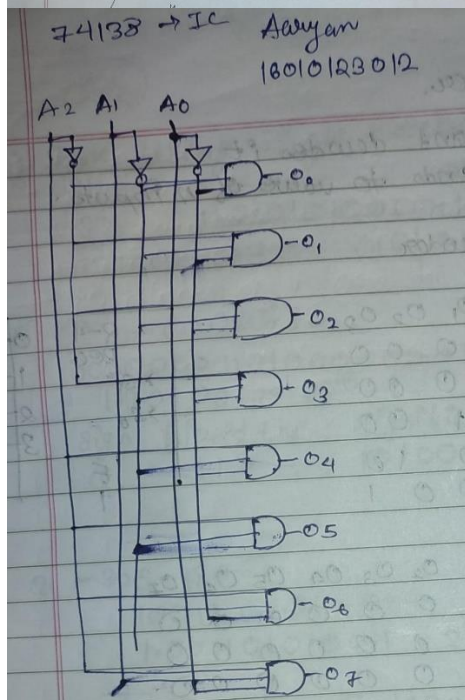 74138 → IC Aaryan
16010123012
A2 A1 A0
O0
O1
O2
O3
O4
O5
O6
O7